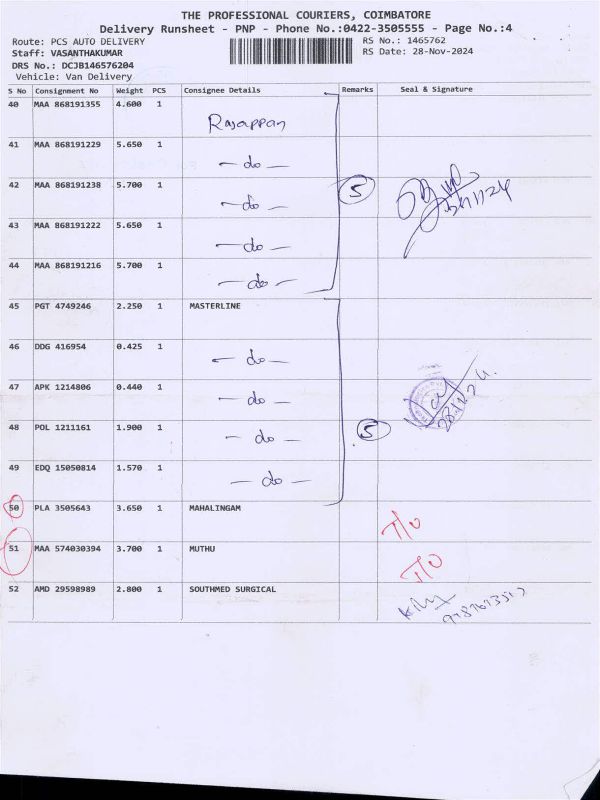 THE PROFESSIONAL COURIERS, COIMBATORE
Delivery Runsheet - PNP - Phone No.:0422-3505555 - Page No.:4
Route: PCS AUTO DELIVERY RS No.: 1465762
Staff: VASANTHAKUMAR RS Date: 28-Nov-2024
DRS No.: DCJB146576204
Vehicle: Van Delivery
S No Consignment No Weight PCS Consignee Details Remarks Seal & Signature
40 MAA 868191355 4.600 1 Rajappan
41 MAA 868191229 5.650 1 - do -
42 MAA 868191238 5.700 1 - do - 5
43 MAA 868191222 5.650 1 - do -
44 MAA 868191216 5.700 1 - do -
45 PGT 4749246 2.250 1 MASTERLINE
46 DDG 416954 0.425 1 - do -
47 APK 1214806 0.440 1 - do -
48 POL 1211161 1.900 1 - do - 5
49 EDQ 15050814 1.570 1 - do -
50 PLA 3505643 3.650 1 MAHALINGAM T/O
51 MAA 574030394 3.700 1 MUTHU T/O
52 AMD 29598989 2.800 1 SOUTHMED SURGICAL